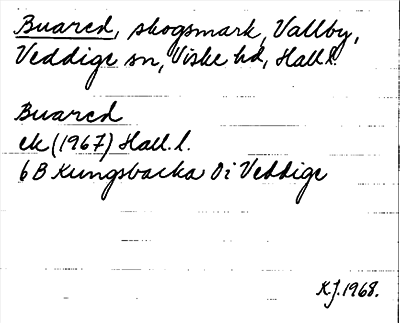 Buared, skogsmark, Vallby,
Veddige sn, Viske hd, Hall.l.
Buared
ek (1967) Hall.l.
6 B Kungsbacka 0i Veddige
K.J. 1968.